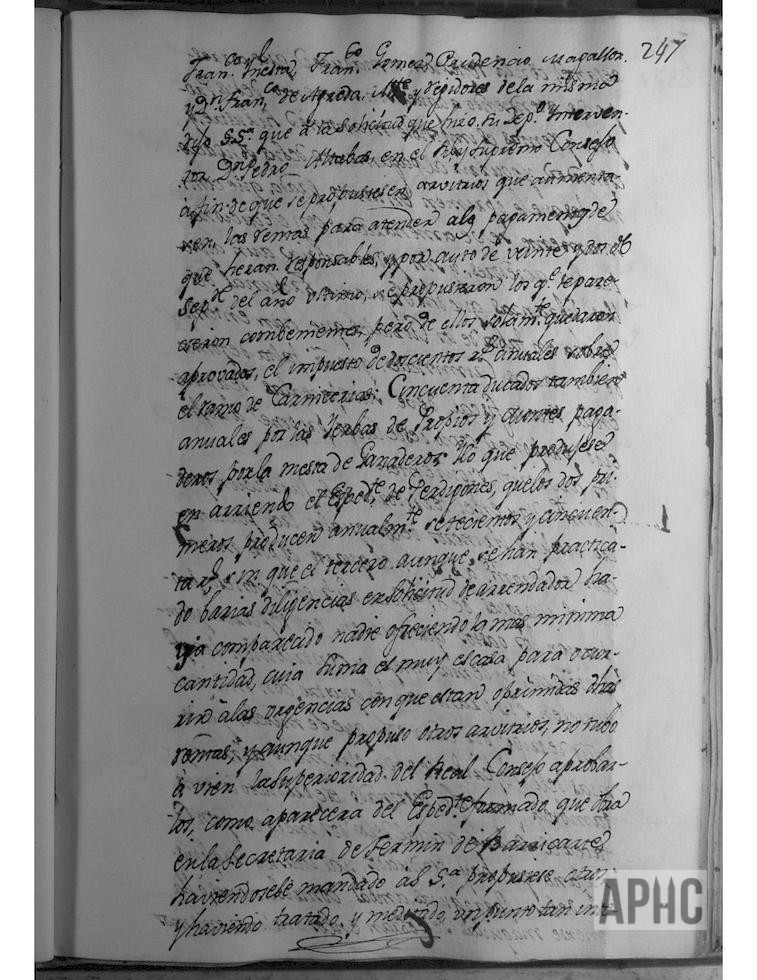 247
Fran.co Fran.co Gomez Prudencio Magallon
y D.n Fran.co de Agreda, Alc.te y rejidores de la misma
dijo S.Sa que à la solicitud que hizo su Dep.o Interven-
tor D.n Pedro Altabas, en el R.l y Supremo Consejo
à fin de que se propusiesen arvitrios que aumenta-
sen las rentas para atender al pagamento de
que heran responsables, y por auto de veinte y dos de
Sep.re del año ultimo, se propusieron los q.e se pare-
cieron combenientes, pero de ellos solam.te quedaron
aprovados, el impuesto de doscientos r.s anuales sobre
el ramo de Carnicerias: Cincuenta ducados tambien
anuales por las Yerbas de Propios y Quintos paga-
deros por la mesta de Ganaderos: Y lo que produjese
en arriendo el Esped.te de Perdigones, que los dos pri-
meros producen anualm.te setecientos y cincuen-
ta r.s sin que el tercero aunque se han practica-
do barias diligencias en solicitud de arrendador ha-
ya comparecido nadie ofreciendo la mas minima
cantidad, cuia suma es muy escasa para ocur-
rir à las urgencias con que estan oprimidas dhas
rentas; y aunque propuso otros arvitrios, no tubo
à vien la Superioridad del Real Consejo aprobar-
los, como aparecerà del Esped.te formado que obra
en la Secretaria de Fermin de Barricarte,
haviendosele mandado à S.Sa propusiese otros
y haviendo tratado, y meditado, un punto tan inte
APHC